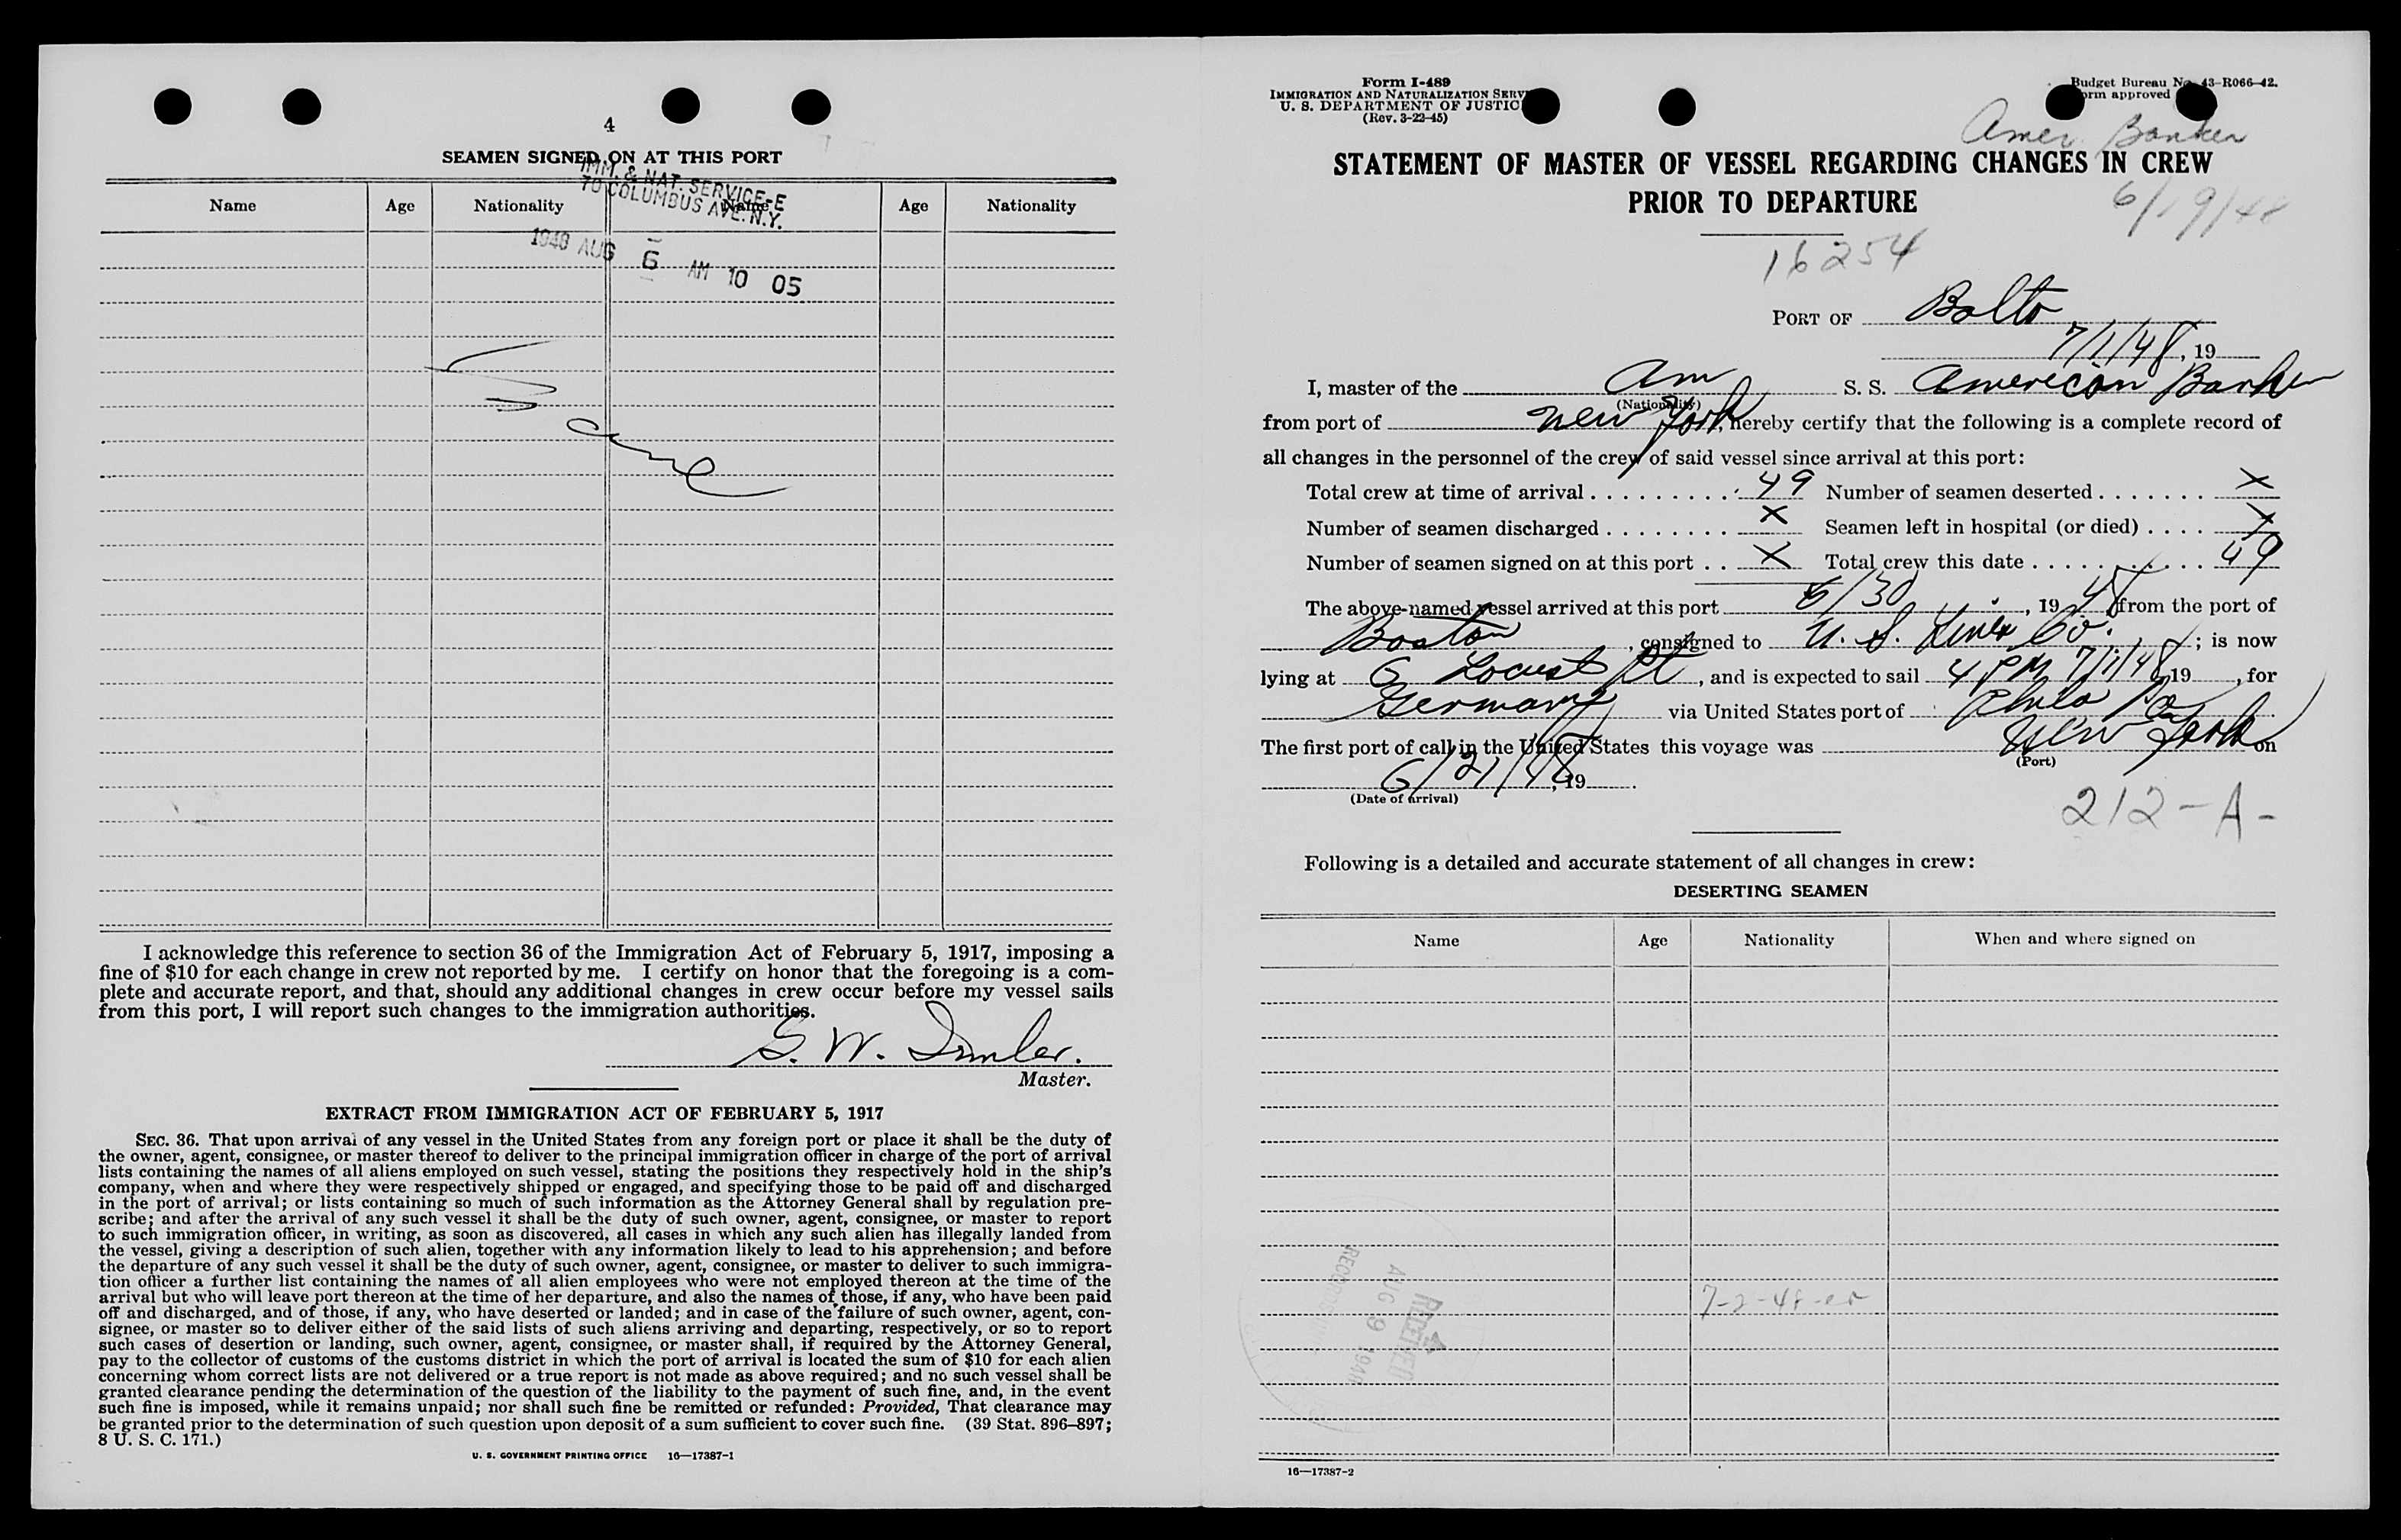 4
SEAMEN SIGNED ON AT THIS PORT
IMM. & NAT. SERVICE-E
70 COLUMBUS AVE. N.Y.
Name Age Nationality Name Age Nationality
1948 AUG 6 AM 10 05
I acknowledge this reference to section 36 of the Immigration Act of February 5, 1917, imposing a
fine of $10 for each change in crew not reported by me. I certify on honor that the foregoing is a com-
plete and accurate report, and that, should any additional changes in crew occur before my vessel sails
from this port, I will report such changes to the immigration authorities.
G. W.
Master.
EXTRACT FROM IMMIGRATION ACT OF FEBRUARY 5, 1917
SEC. 36. That upon arrival of any vessel in the United States from any foreign port or place it shall be the duty of
the owner, agent, consignee, or master thereof to deliver to the principal immigration officer in charge of the port of arrival
lists containing the names of all aliens employed on such vessel, stating the positions they respectively hold in the ship's
company, when and where they were respectively shipped or engaged, and specifying those to be paid off and discharged
in the port of arrival; or lists containing so much of such information as the Attorney General shall by regulation pre-
scribe; and after the arrival of any such vessel it shall be the duty of such owner, agent, consignee, or master to report
to such immigration officer, in writing, as soon as discovered, all cases in which any such alien has illegally landed from
the vessel, giving a description of such alien, together with any information likely to lead to his apprehension; and before
the departure of any such vessel it shall be the duty of such owner, agent, consignee, or master to deliver to such immigra-
tion officer a further list containing the names of all alien employees who were not employed thereon at the time of the
arrival but who will leave port thereon at the time of her departure, and also the names of those, if any, who have been paid
off and discharged, and of those, if any, who have deserted or landed; and in case of the failure of such owner, agent, con-
signee, or master so to deliver either of the said lists of such aliens arriving and departing, respectively, or so to report
such cases of desertion or landing, such owner, agent, consignee, or master shall, if required by the Attorney General,
pay to the collector of customs of the customs district in which the port of arrival is located the sum of $10 for each alien
concerning whom correct lists are not delivered or a true report is not made as above required; and no such vessel shall be
granted clearance pending the determination of the question of the liability to the payment of such fine, and, in the event
such fine is imposed, while it remains unpaid; nor shall such fine be remitted or refunded: Provided, That clearance may
be granted prior to the determination of such question upon deposit of a sum sufficient to cover such fine. (39 Stat. 896–897;
8 U. S. C. 171.)
U. S. GOVERNMENT PRINTING OFFICE 16—17387-1
Form I-489
IMMIGRATION AND NATURALIZATION SERV
U. S. DEPARTMENT OF JUSTIC
(Rev. 3-22-45)
Budget Bureau No. 43-R066-42.
orm approved
Amer. Banker
STATEMENT OF MASTER OF VESSEL REGARDING CHANGES IN CREW
PRIOR TO DEPARTURE
6/19/48
16254
PORT OF Balto
7/1/48, 19
I, master of the Am S. S. American Banker
(Nationality)
from port of New York, hereby certify that the following is a complete record of
all changes in the personnel of the crew of said vessel since arrival at this port:
Total crew at time of arrival 49 Number of seamen deserted X
Number of seamen discharged X Seamen left in hospital (or died) X
Number of seamen signed on at this port X Total crew this date 49
The above-named vessel arrived at this port 6/30, 19 48 from the port of
Boston, consigned to U. S. Lines Co.; is now
lying at 6 Locust Pt, and is expected to sail 4 PM 7/1/48 19, for
Germany via United States port of Phila Pa
The first port of call in the United States this voyage was New York on
(Port)
6/21/48, 19.
(Date of arrival)
212-A-
Following is a detailed and accurate statement of all changes in crew:
DESERTING SEAMEN
Name Age Nationality When and where signed on
7-2-48
RECEIVED
AUG 9 194
16—17387-2